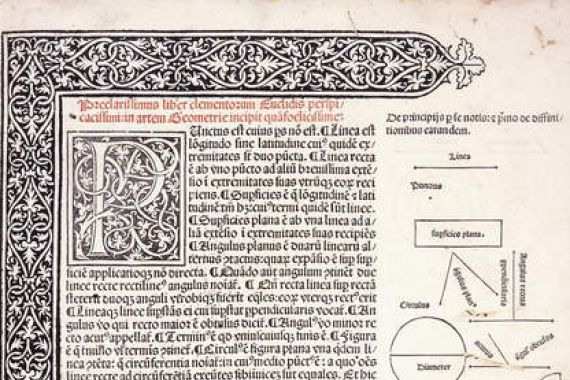 Preclarissimus liber elementorum Euclidis perspi/
cacissimi: in artem Geometrie incipit quāfoelicissime:
PUnctus est cuius ps nō est. ¶ Linea est
lōgitudo sine latitudine cui⁹ quidē ex/
tremitates st duo pūcta. ¶ Linea recta
ē ab vno pūcto ad aliū breuissima extē/
sio ī extremitates suas vtrūqꝫ eoꝝ reci
piens. ¶ Supficies ē q̄ lōgitudinē ⁊ lati
tudinē tm̄ hꝫ: cui⁹ termi quidē sūt linee.
¶ Supficies plana ē ab vna linea ad a/
liā extēsio ī extremitates suas recipiēs
¶ Angulus planus ē duarū linearū al/
ternus ꝯtactus: quaꝝ expāsio ē sup sup/
ficiē applicatioqꝫ nō directa. ¶ Quādo aūt angulum ꝯtinēt due
linee recte rectiline⁹ angulus noīaꞇ. ¶ Qn̄ recta linea sup rectā
steterit duoqꝫ anguli vtrobiqꝫ fuerīt eq̄les: eoꝝ vterqꝫ rect⁹ erit
¶ Lineaqꝫ linee supstās ei cui supstat ppendicularis vocaꞇ. ¶ An
gulus vo qui recto maior ē obtusus diciꞇ. ¶ Angul⁹ vo minor re
cto acut⁹ appellaꞇ. ¶ Termin⁹ ē qd vniuscuiusqꝫ finis ē. ¶ Figura
ē q̄ tmīo vl' termīs ꝯtineꞇ. ¶ Circul⁹ ē figura plana vna qdem li/
nea ꝯtēta: q̄ circūferentia noīaꞇ: in cui⁹ medio pūct⁹ ē: a quo oēs
linee recte ad circūferētiā exeūtes sibiīuicez sūt equales. Et hic
De principijs p se notis: ⁊ pmo de diffini/
tionibus earundem.
Linea
Punctus
supficies plana.
Circulus
Diameter
ppendicularis
Angulus rectus
acutus